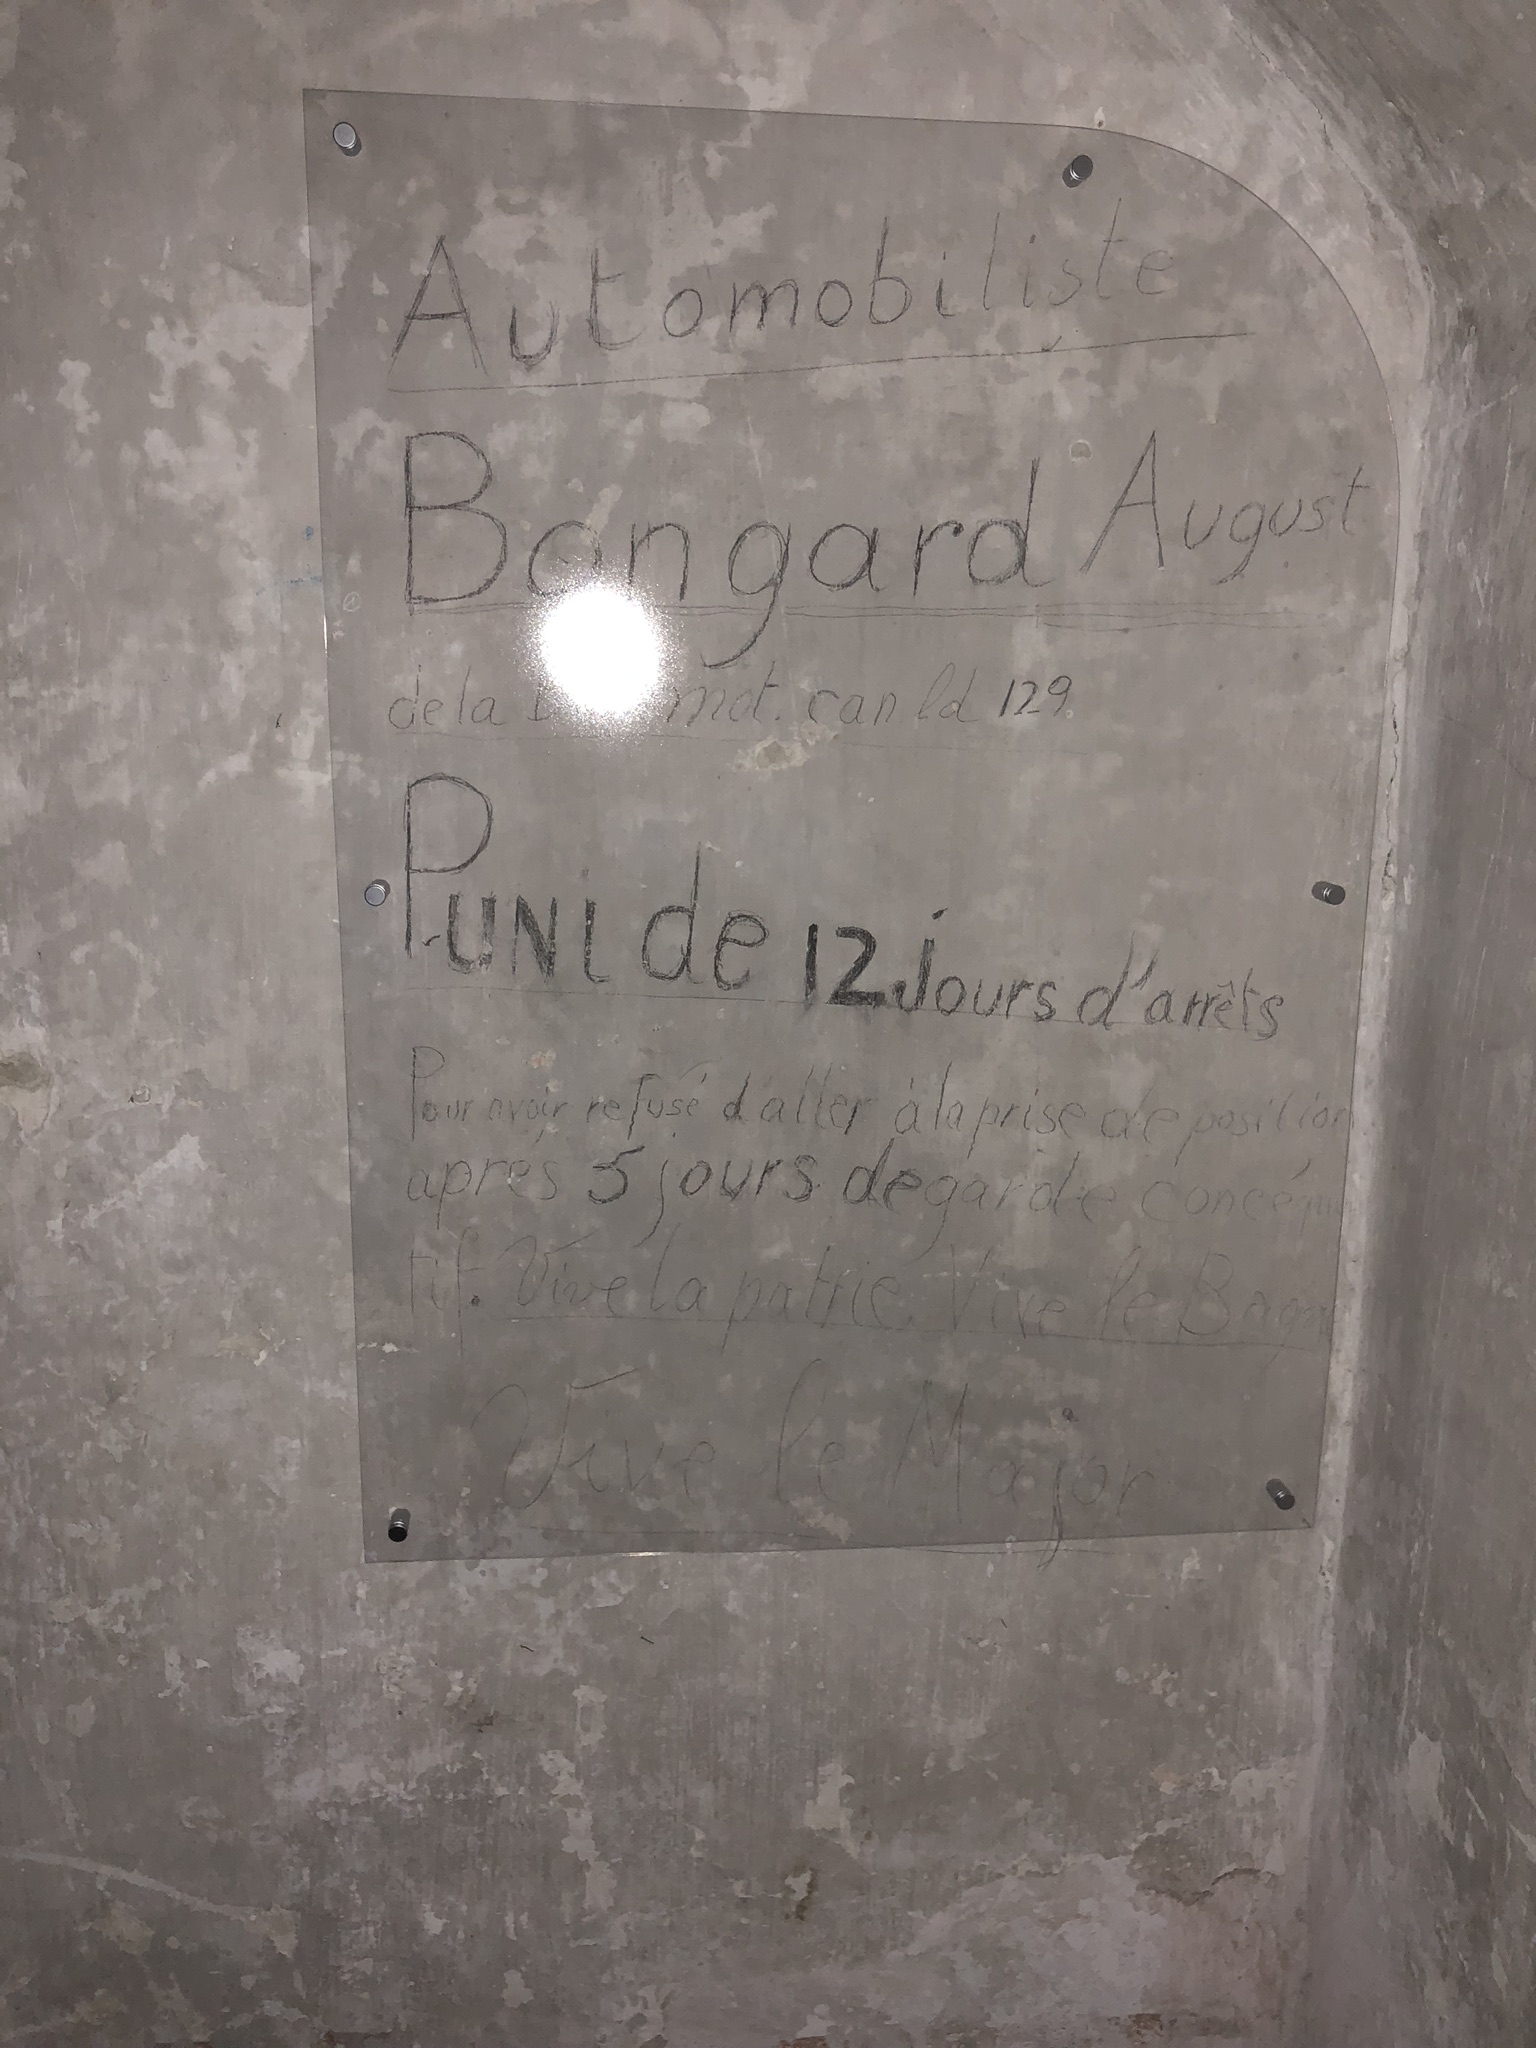 Automobiliste
Bongard August
de la mot. can ld 129.
PUNI de 12 jours d'arrêts
Pour avoir refusé d'aller à la prise de position
après 5 jours de garde concéqu
tif. Vive la patrie. Vive le Bagn
Vive le Major